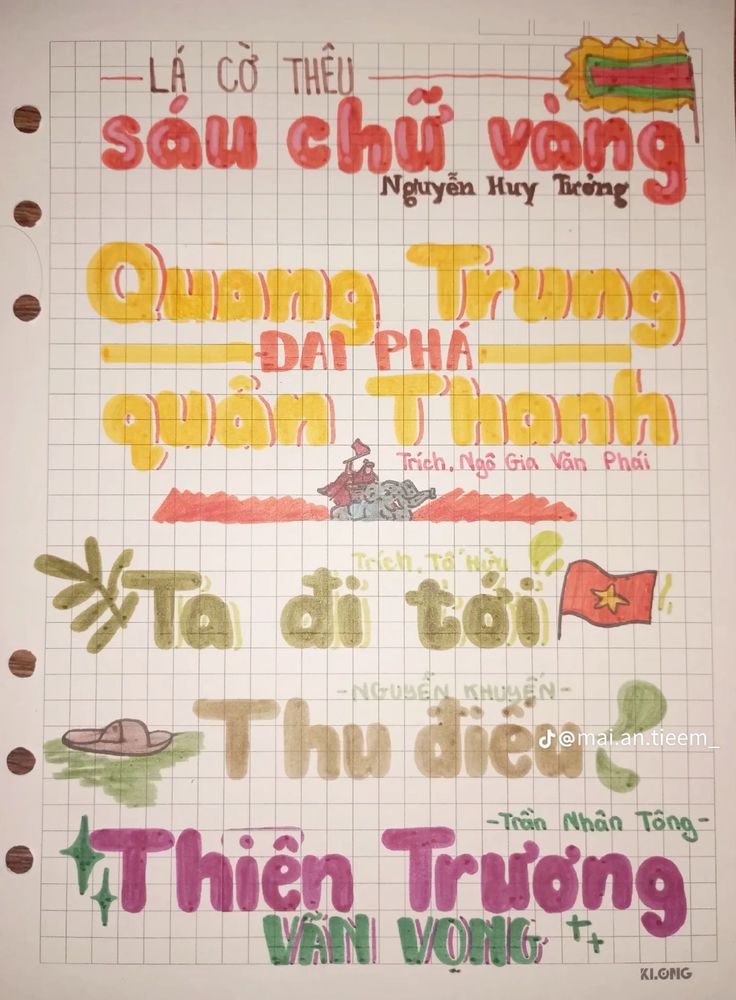 LÁ CỜ THÊU
sáu chữ vàng
Nguyễn Huy Tưởng
Quang Trung
ĐẠI PHÁ
quân Thanh
Trích, Ngô Gia Văn Phái
Trích, Tố Hữu
Ta đi tới
-NGUYỄN KHUYẾN-
Thu điếu
@mai.an.tieem_
-Trần Nhân Tông-
Thiên Trương
VÃN VỌNG
KLONG